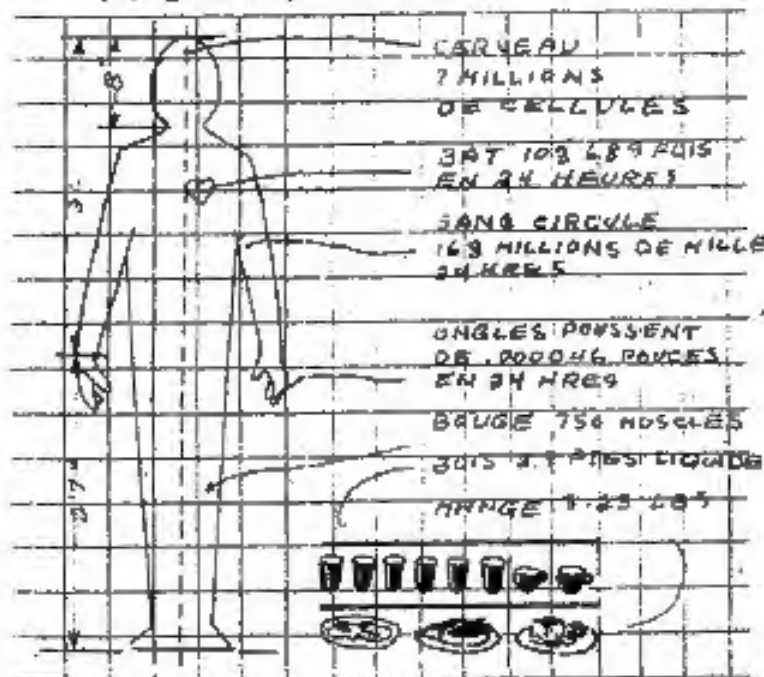 8"
CERVEAU
7 MILLIONS
DE CELLULES
BAT 103 689 FOIS
EN 24 HEURES
SANG CIRCULE
168 MILLIONS DE MILLE
24 HRES
ONGLES POUSSENT
DE .000046 POUCES
EN 24 HRES
BOUGE 750 MUSCLES
BOIS LIQUIDE
MANGE LBS